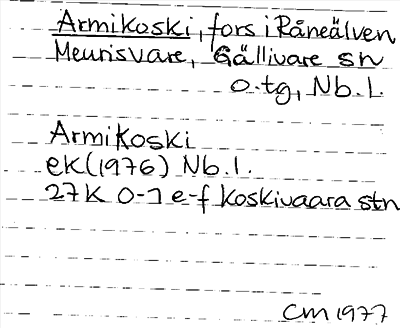 Armikoski, fors i Råneälven
Meurisvare, Gällivare sn
o.tg, Nb.l.
Armikoski
ek(1976) Nb.l.
27K 0-1 e-f Koskivaara stn
CM 1977